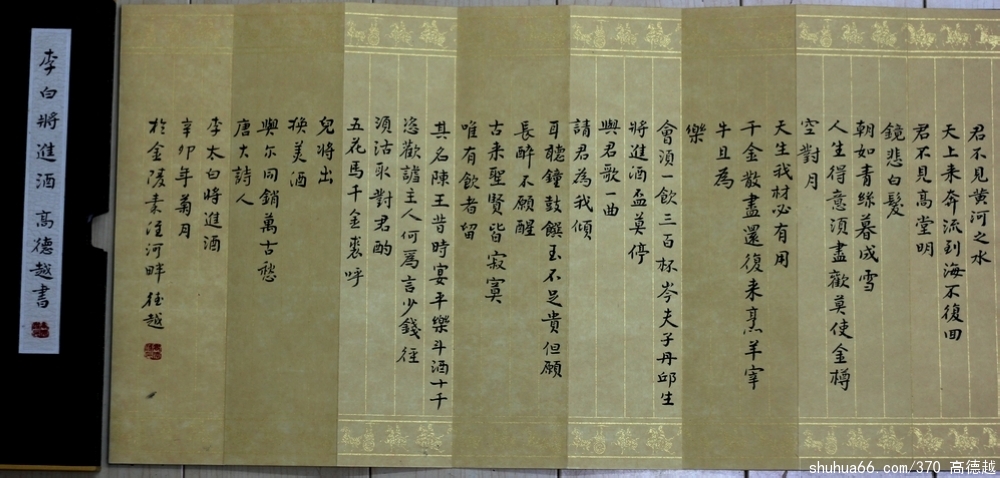 君不見黃河之水
天上來奔流到海不復回
君不見高堂明
鏡悲白髮
朝如青絲暮成雪
人生得意須盡歡莫使金樽
空對月
天生我材必有用
千金散盡還復來烹羊宰
牛且為
樂
會須一飲三百杯岑夫子丹邱生
將進酒盃莫停
與君歌一曲
請君為我傾
耳聽鐘鼓饌玉不足貴但願
長醉不願醒
古来聖賢皆寂寞
唯有飲者留
其名陳王昔時宴平樂斗酒十千
恣歡謔主人何為言少錢徑
須沽取對君酌
五花馬千金裘呼
兒將出
換美酒
與尔同銷萬古愁
唐大詩人
李太白將進酒
辛卯年菊月
於金陵秦淮河畔德越
李白將進酒 高德越書
shuhua66.com/370 高德越